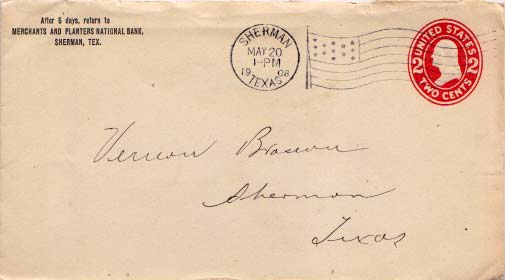 After 5 days, return to
MERCHANTS AND PLANTERS NATIONAL BANK,
SHERMAN, TEX.
SHERMAN
MAY 20
1-PM
1908
TEXAS
UNITED STATES
2 2
TWO CENTS
Vernon
Sherman
Texas